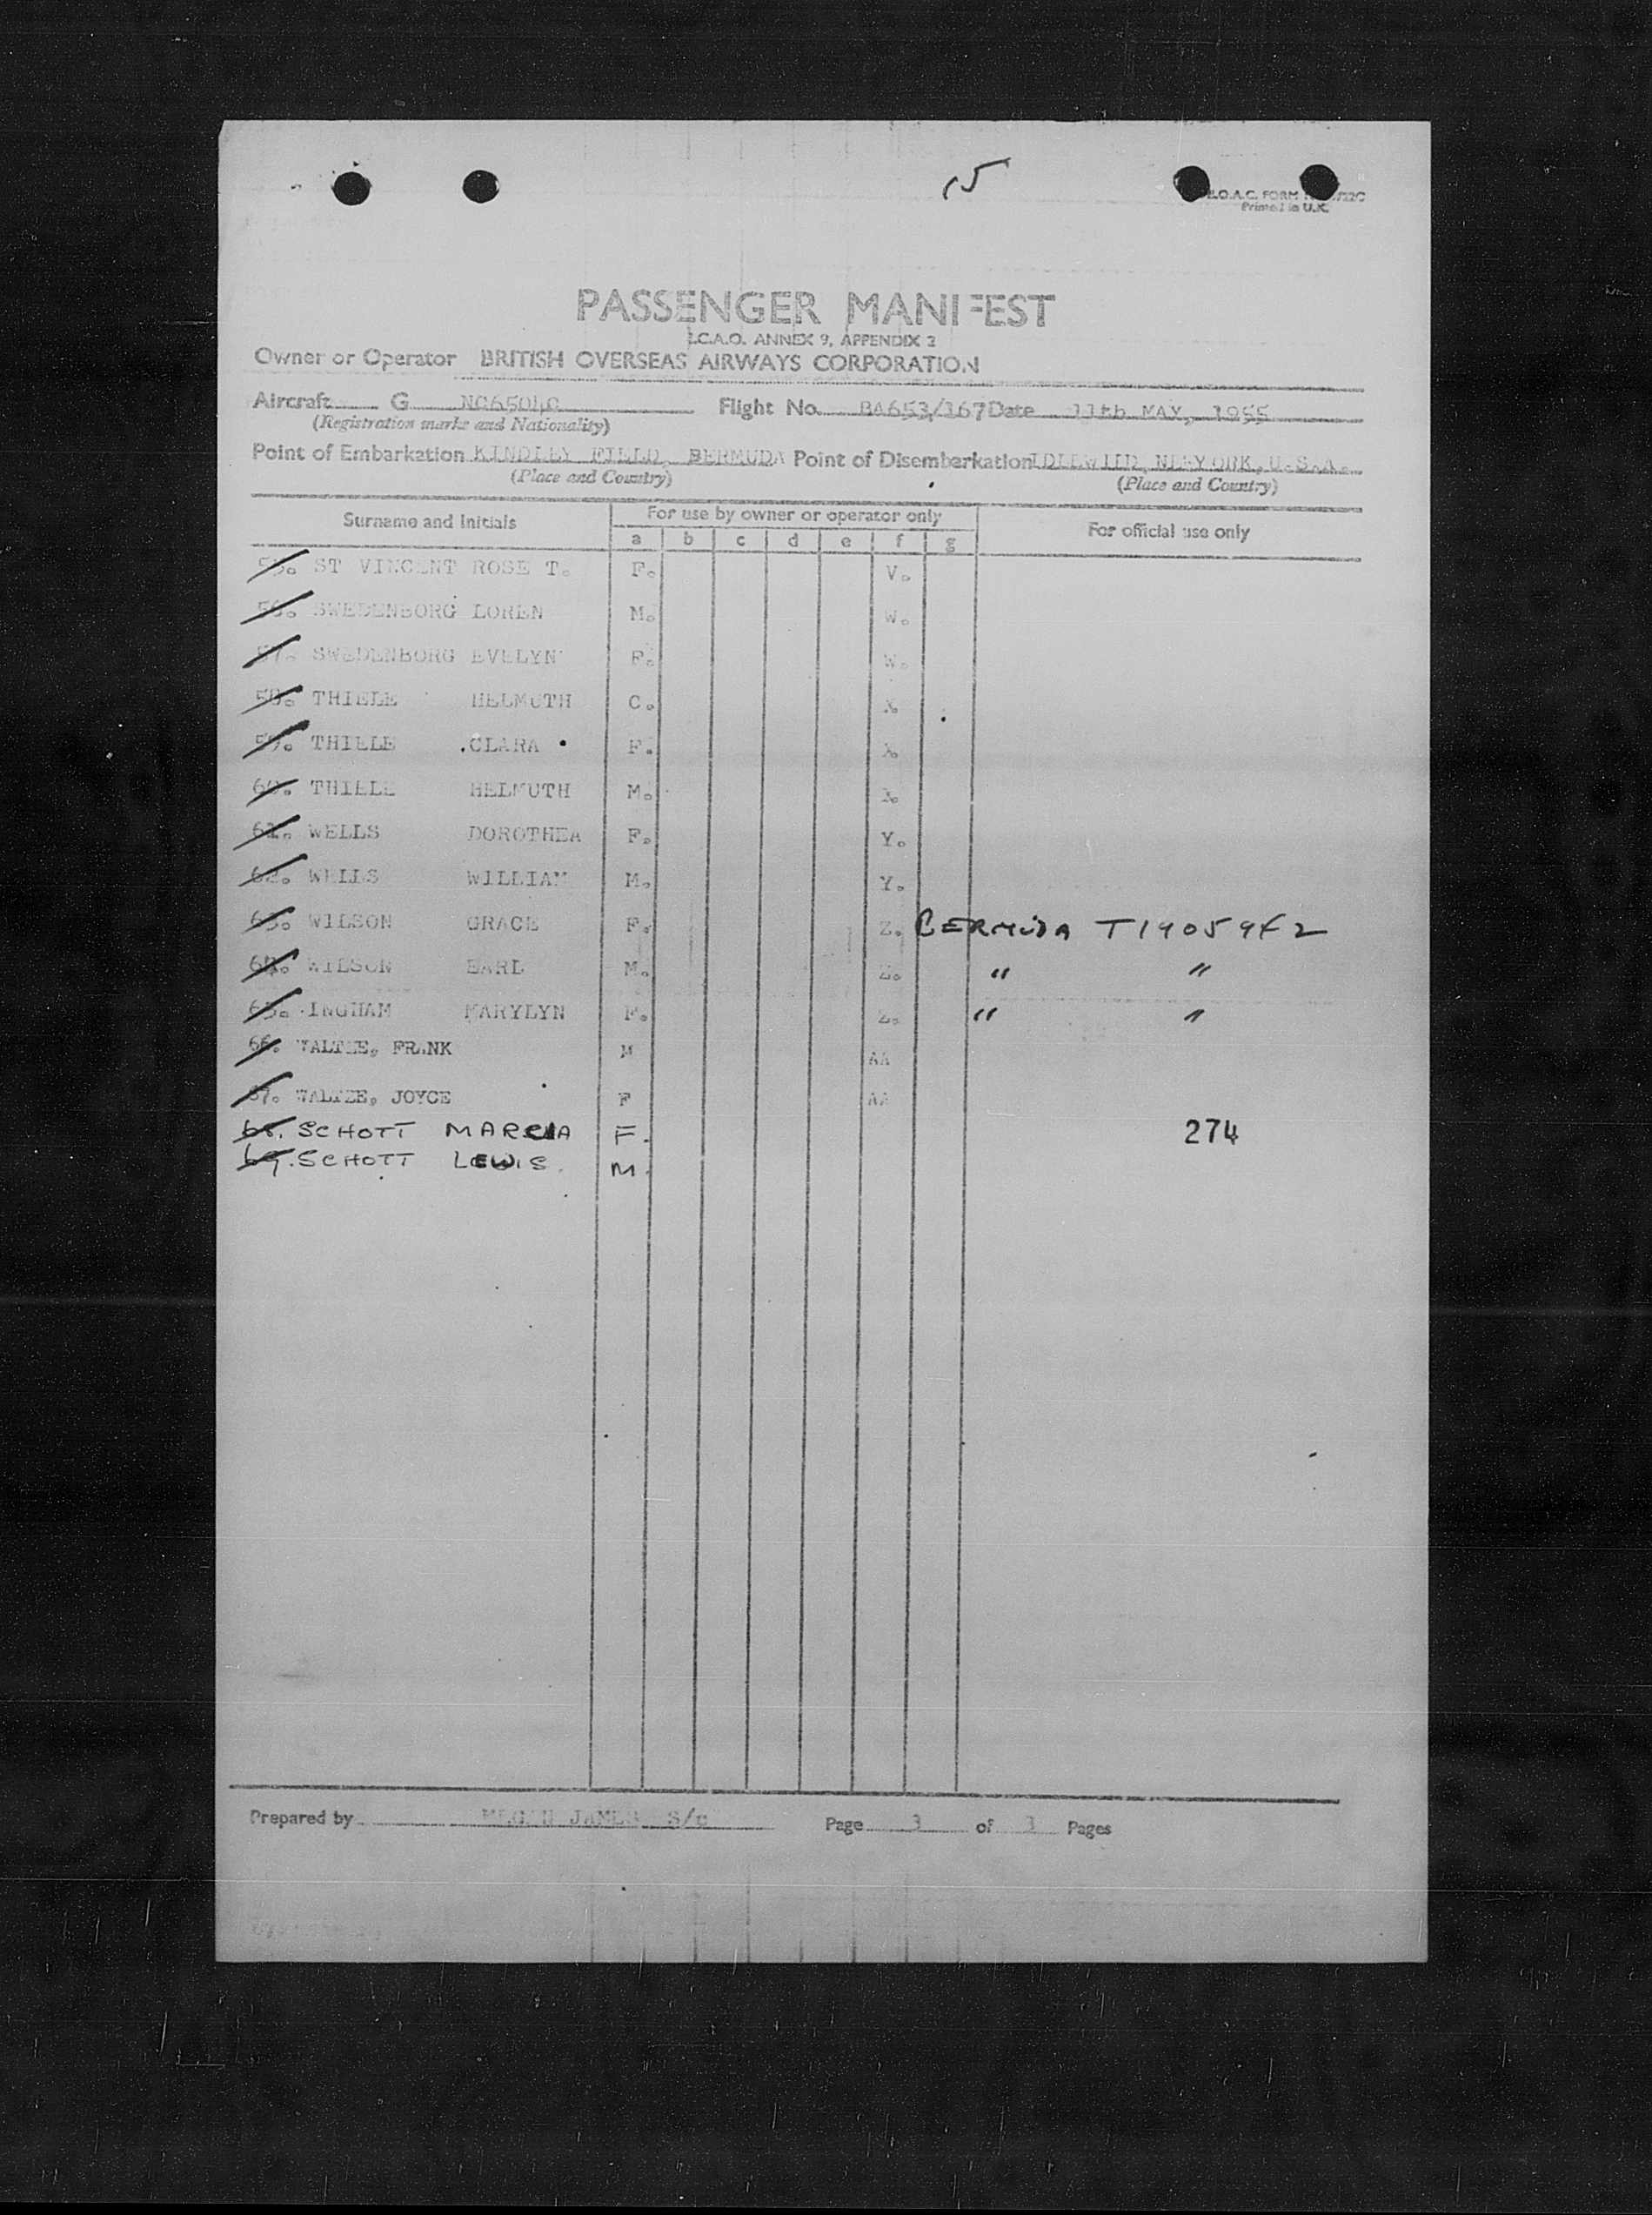 15
B.O.A.C. FORM
Printed in U.K.
PASSENGER MANIFEST
I.C.A.O. ANNEX 9, APPENDIX 2
Owner or Operator BRITISH OVERSEAS AIRWAYS CORPORATION
Aircraft G NC6504C Flight No. BA653/167 Date 11th MAY, 1955
(Registration marks and Nationality)
Point of Embarkation KINDLEY FIELD, BERMUDA Point of Disembarkation IDLEWILD, NEWYORK, U.S.A.
(Place and Country) (Place and Country)
Surname and Initials For use by owner or operator only For official use only
a b c d e f g
55. ST VINCENT ROSE T. F. V.
56. SWEDENBORG LOREN M. W.
57. SWEDENBORG EVELYN F. W.
58. THIELE HELMUTH C. X.
59. THIELE CLARA F. X.
60. THIELE HELMUTH M. X.
61. WELLS DOROTHEA F. Y.
62. WELLS WILLIAM M. Y.
63. WILSON GRACE F. Z. BERMUDA T1905942
64. WILSON EARL M. Z. " "
65. INGHAM MARYLYN F. Z. " "
66. WALTZE, FRANK M AA
67. WALTZE, JOYCE F AA
68. SCHOTT MARCIA F. 274
69. SCHOTT LEWIS. M.
Prepared by MEGAN JAMES S/c Page 3 of 3 Pages